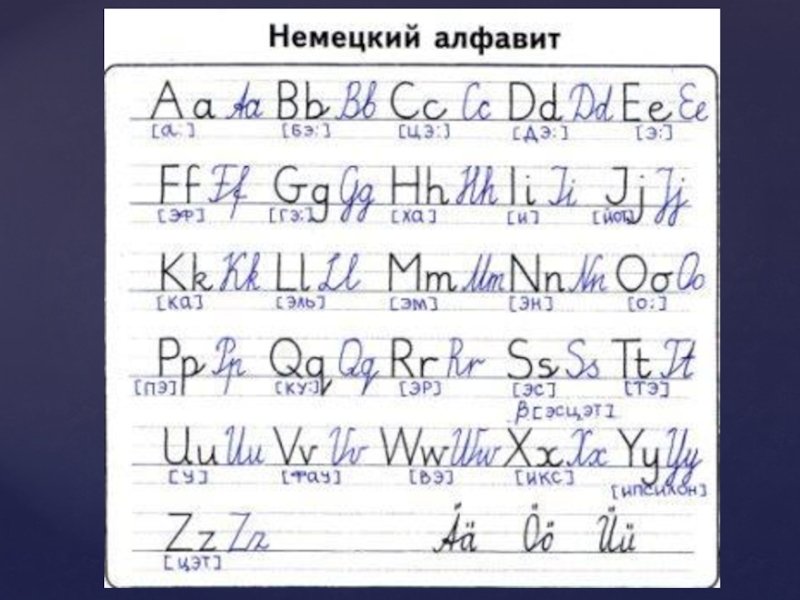 Немецкий алфавит
A a Aa Bb Bb Cc Cc Dd Dd Ee Ee
[а:] [бэ:] [цэ:] [дэ:] [э:]
Ff Ff Gg Gg Hh Hh Ii Ii Jj Jj
[эф] [гэ:] [ха] [и] [йот]
Kk Kk Ll Ll Mm Mm Nn Nn Oo Oo
[ка] [эль] [эм] [эн] [о:]
Pp Pp Qq Qq Rr Rr Ss Ss Tt Tt
[пэ] [ку:] [эр] [эс] [тэ]
β [эсцэт]
Uu Uu Vv Vv Ww Ww Xx Xx Yy Yy
[у] [фау] [вэ] [икс] [ипсилон]
Zz Zz Ää Öö Üü
[цэт]